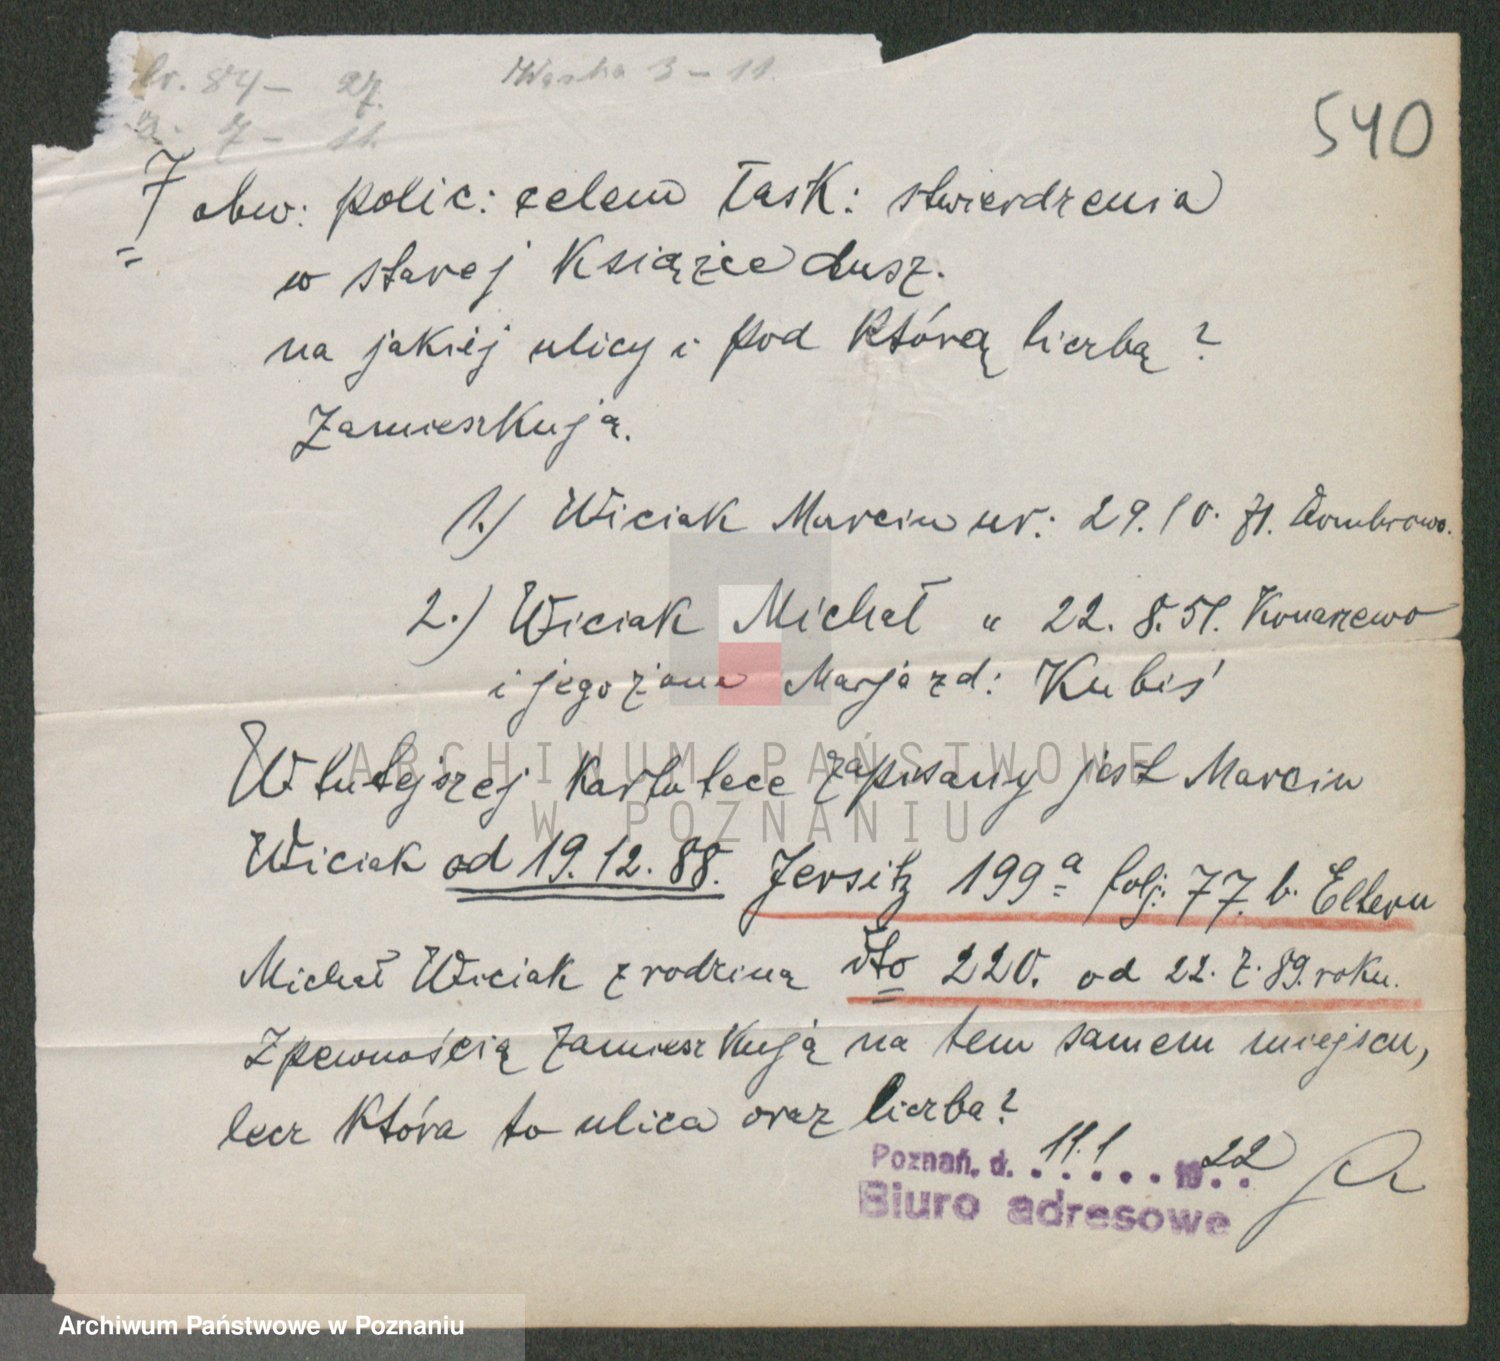 Nr. 84 – 27. Wąska 3 – 11.
7 – 11.
540
7 obw: polic: celem łask: stwierdzenia
w starej Książce dusz.
na jakiej ulicy i pod Którą liczbą?
Zamieszkują.
1.) Wiciak Marcin ur: 29.10.71. Dombrowo.
2.) Wiciak Michał " 22.8.51. Konarzewo
i jego żona Marja zd: Kubiś
W tutejszej Kartotece zapisany jest Marcin
Wiciak od 19.12.88. Jersitz 199a folj: 77. b. Eltern
Michał Wiciak z rodziną dto 220. od 22.7.89. roku.
Z pewnością zamieszkują na tem samem miejscu,
lecz Która to ulica oraz liczba?
Poznań, d. 11.1 1922
Biuro adresowe
ARCHIWUM PAŃSTWOWE
W POZNANIU
Archiwum Państwowe w Poznaniu